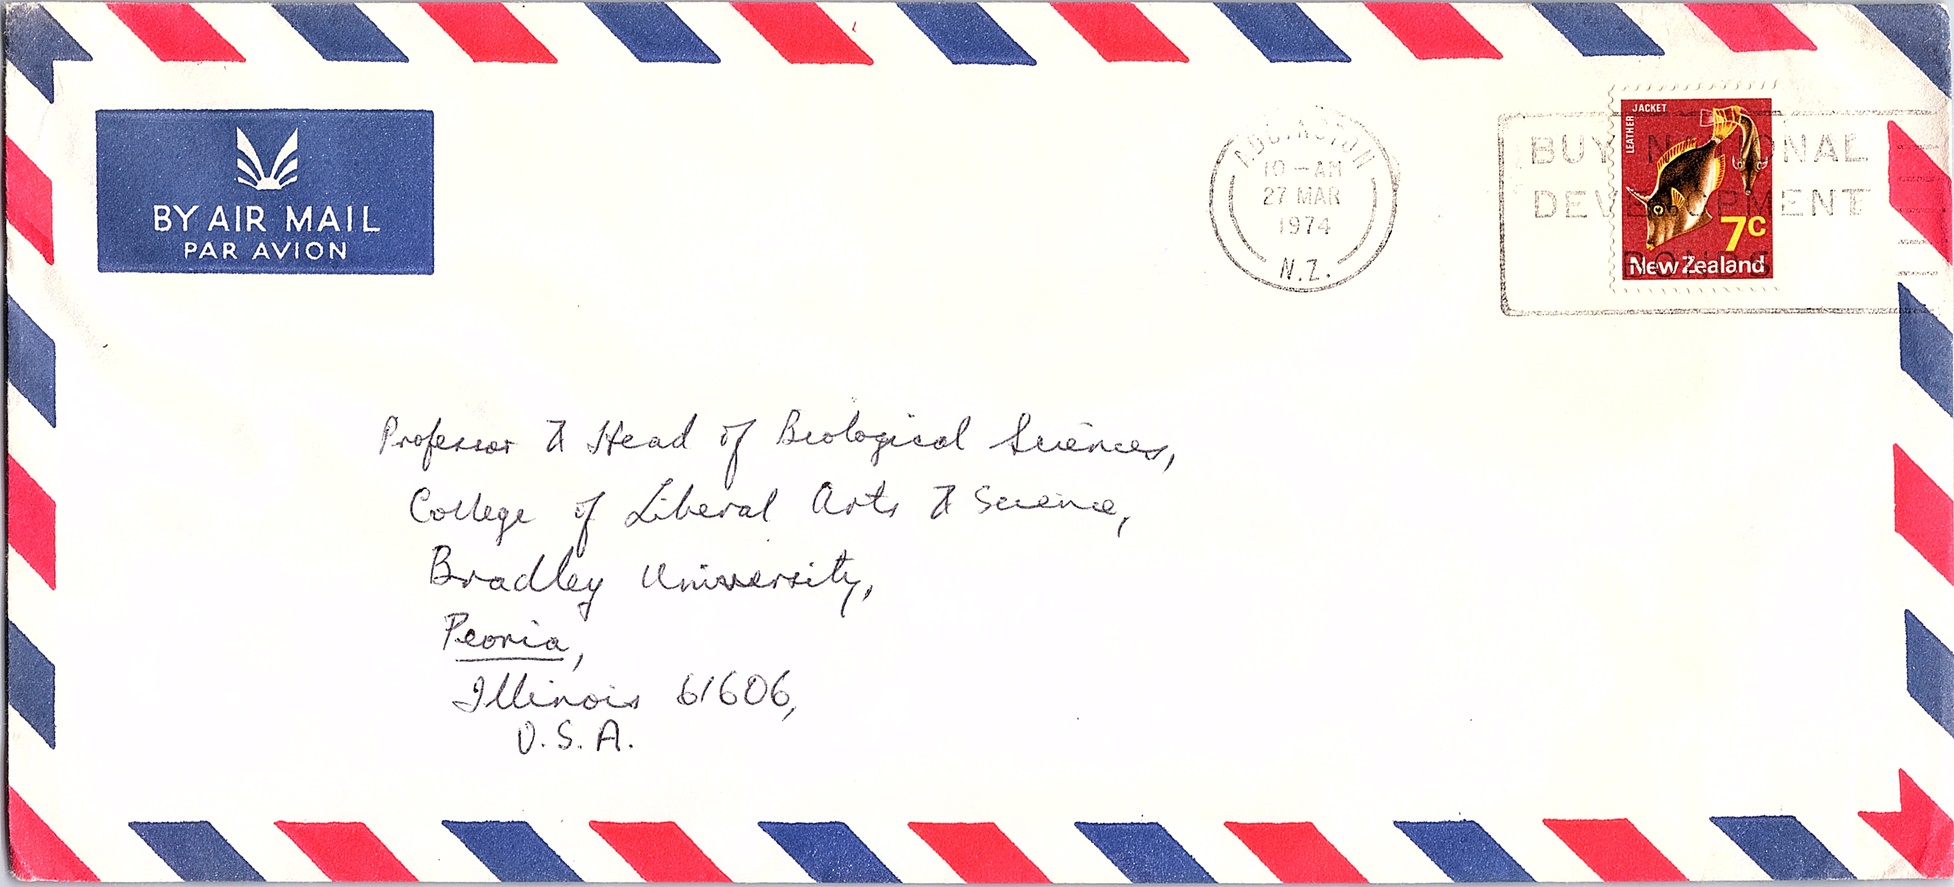 BY AIR MAIL
PAR AVION
ADDINGTON
10 - AM
27 MAR
1974
N.Z.
BUY NATIONAL
DEVELOPMENT
BONDS
LEATHER JACKET
7c
New Zealand
Professor & Head of Biological Sciences,
College of Liberal Arts & Science,
Bradley University,
Peoria,
Illinois 61606,
U.S.A.